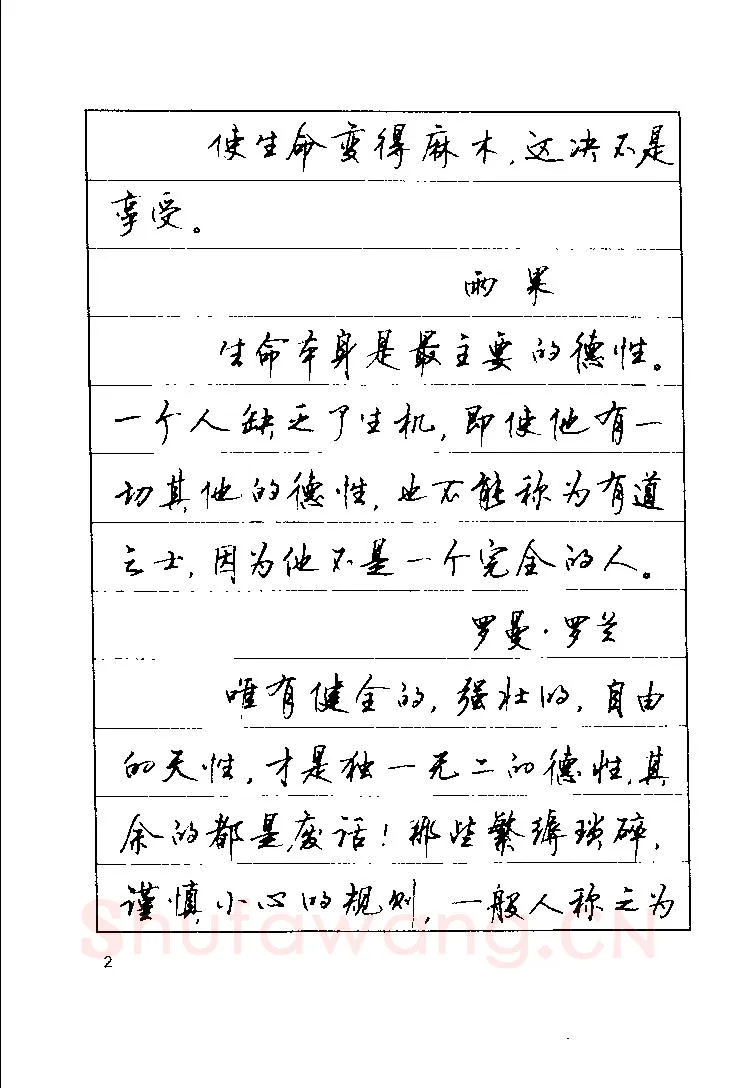 使生命变得麻木,这决不是
享受。
雨果
生命本身是最主要的德性。
一个人缺乏了生机,即使他有一
切其他的德性,也不能称为有道
之士,因为他不是一个完全的人。
罗曼·罗兰
唯有健全的,强壮的,自由
的天性,才是独一无二的德性,其
余的都是废话!那些繁缛琐碎,
谨慎小心的规则,一般人称之为
Shufawang.CN
2